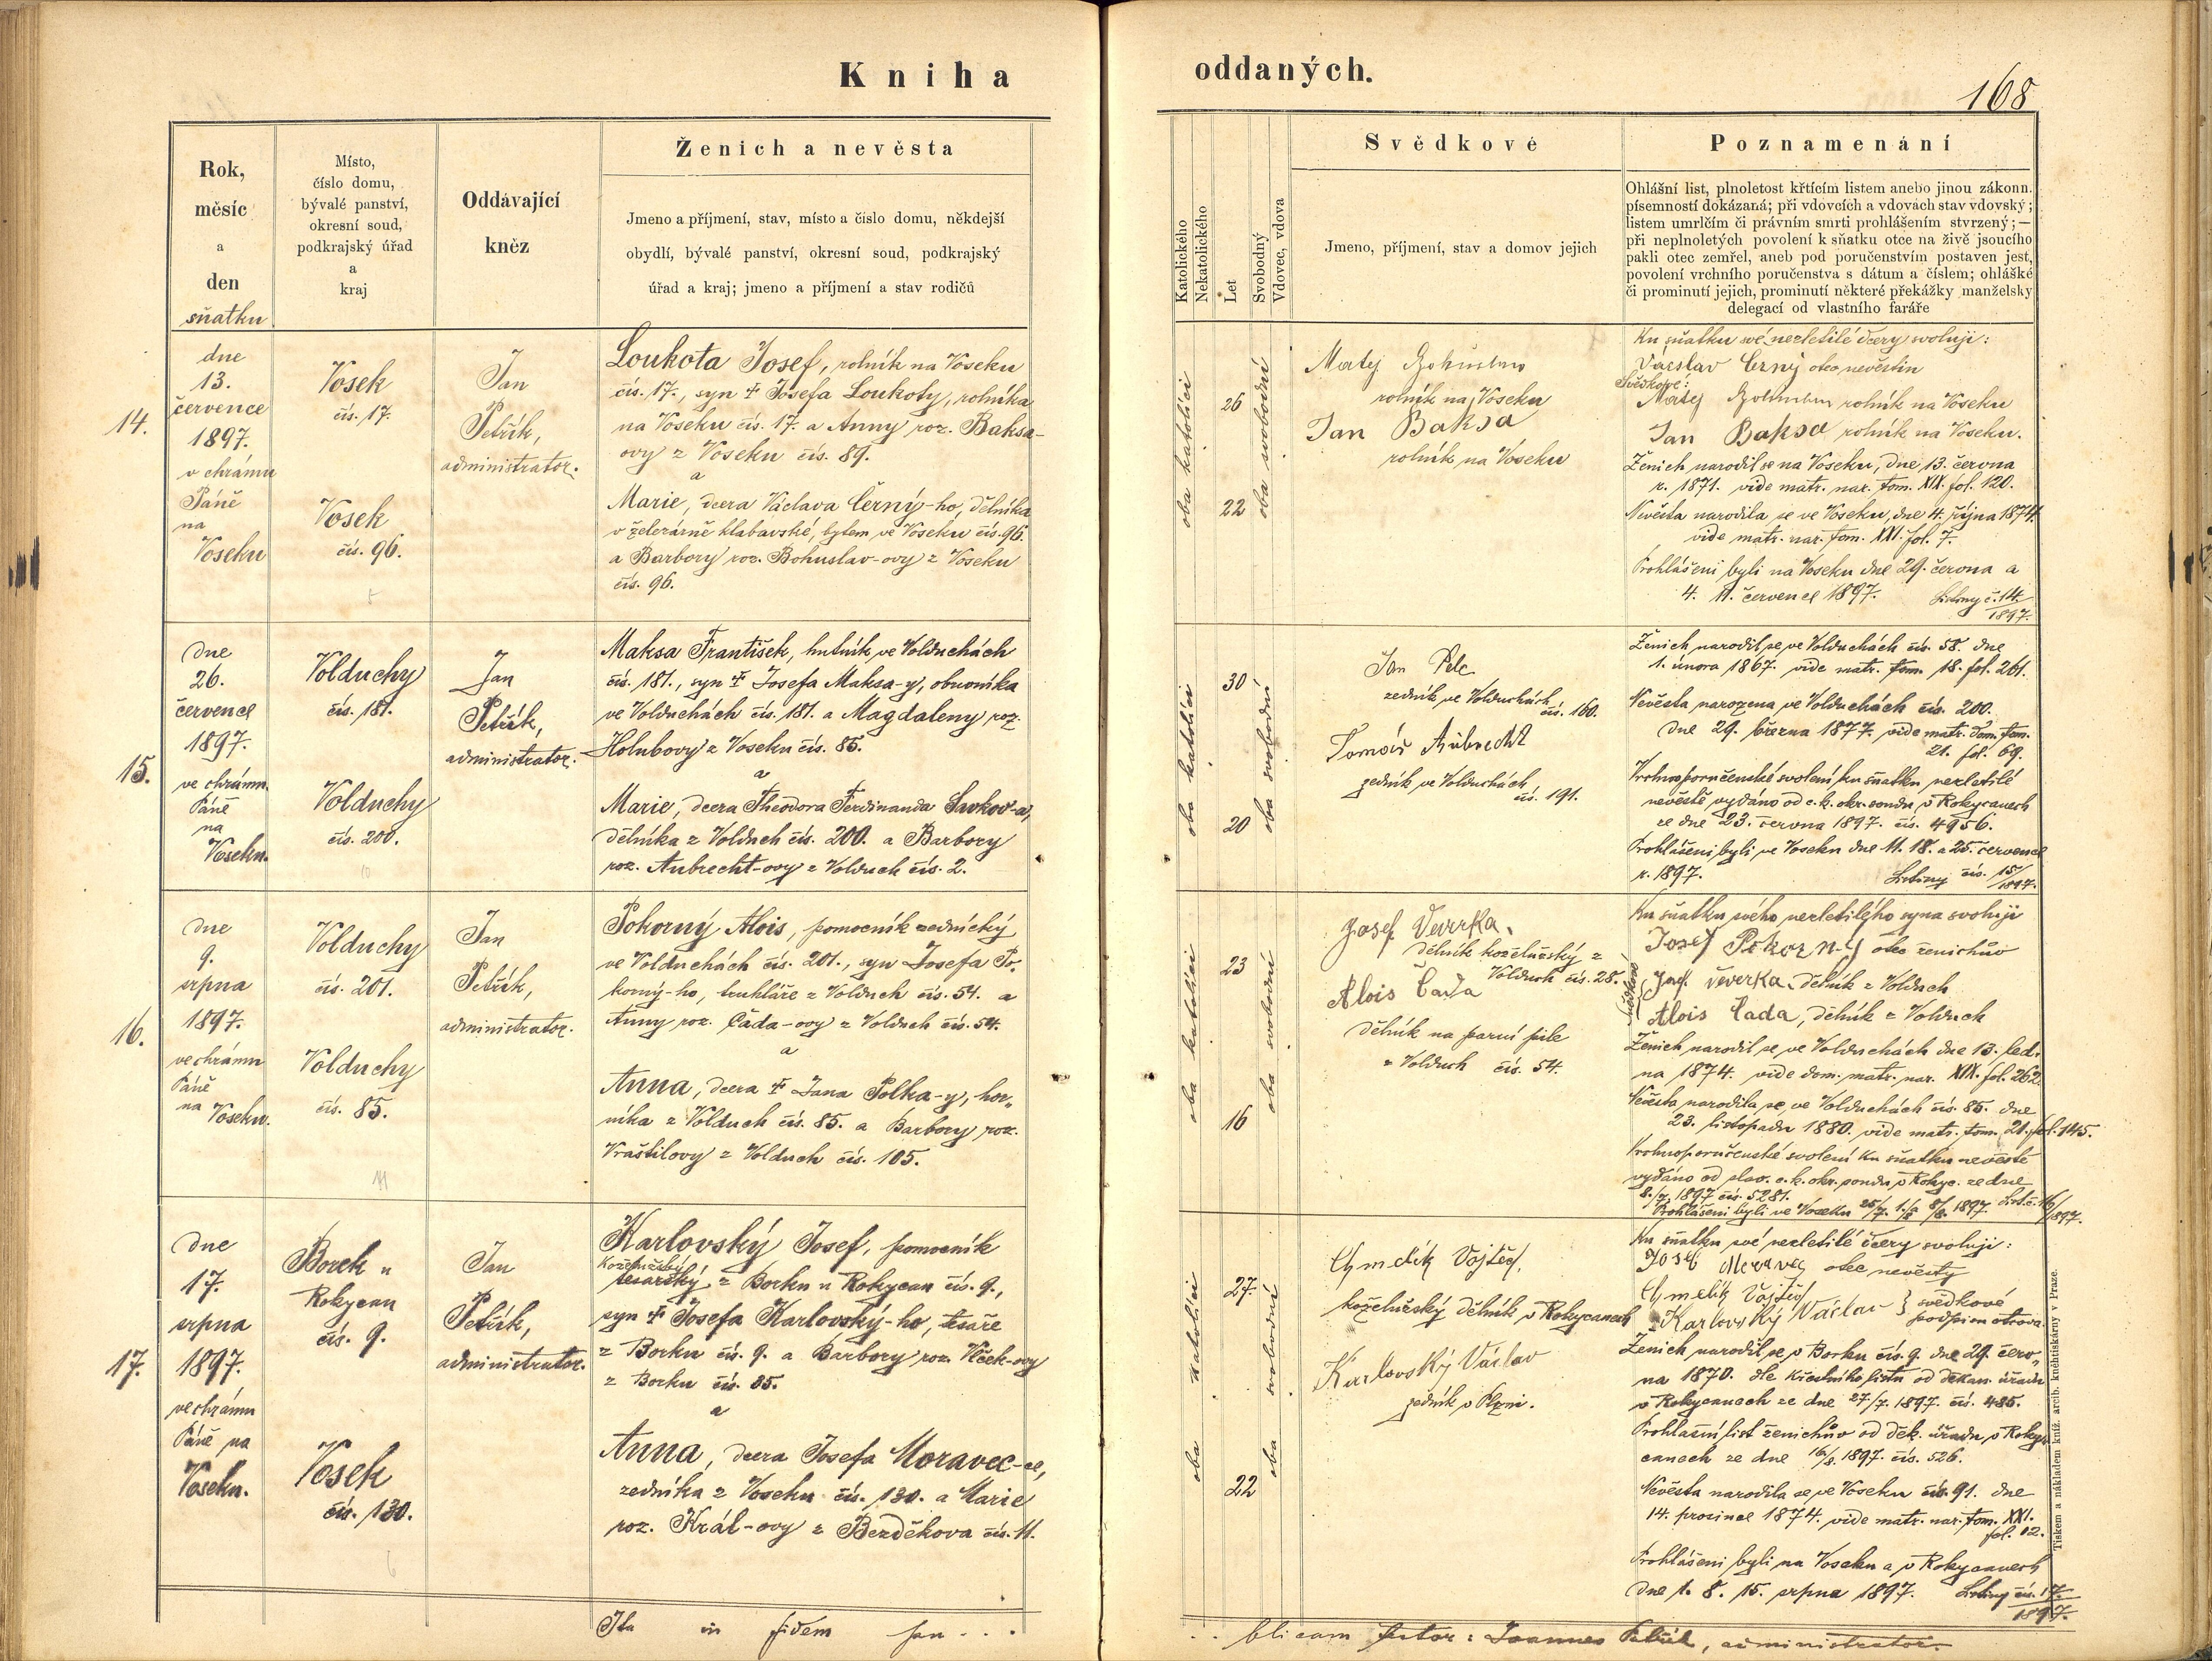 Kniha
oddaných.
168
Rok,
měsíc
a
den
sňatku
Místo,
číslo domu,
bývalé panství,
okresní soud,
podkrajský úřad
a
kraj
Oddávající
kněz
Ženich a nevěsta
Jmeno a příjmení, stav, místo a číslo domu, někdejší
obydlí, bývalé panství, okresní soud, podkrajský
úřad a kraj; jmeno a příjmení a stav rodičů
Katolického
Nekatolického
Let
Svobodný
Vdovec, vdova
Svědkové
Jmeno, příjmení, stav a domov jejich
Poznamenání
Ohlášní list, plnoletost křtícím listem anebo jinou zákonn.
písemností dokázaná; při vdovcích a vdovách stav vdovský;
listem umrlčím či právním smrti prohlášením stvrzený;—
při neplnoletých povolení k sňatku otce na živě jsoucího
pakli otec zemřel, aneb pod poručenstvím postaven jest,
povolení vrchního poručenstva s dátum a číslem; ohlášké
či prominutí jejich, prominutí některé překážky manželsky
delegací od vlastního faráře
14.
dne
13.
července
1897.
v chrámu
Páně
na
Voseku
Vosek
čís. 17.
Vosek
čís. 96.
Jan
Petřík,
administrator.
Loukota Josef, rolník na Voseku
čís. 17., syn † Josefa Loukoty, rolníka
na Voseku čís. 17. a Anny roz. Baksa-
ovy z Voseku čís. 89.
a
Marie, dcera Václava Černý-ho, dělníka
v železárně klabavské, bytem ve Voseku čís. 96.
a Barbory roz. Bohuslav-ovy z Voseku
čís. 96.
oba katolíci
26
22
oba svobodní
Matej Bohuslav
rolník na Voseku
Jan Baksa
rolník na Voseku
Ku sňatku své nezletilé dcery svoluji:
Václav Černý otec nevěstin
Svědkové:
Matej Bohuslav rolník na Voseku
Jan Baksa rolník na Voseku.
Ženich narodil se na Voseku, dne 13. června
r. 1871. vide matr. nar. tom. XIX. fol. 120.
Nevěsta narodila se ve Voseku, dne 4. října 1874.
vide matr. nar. tom. XXI. fol. 7.
Prohlášeni byli na Voseku dne 29. června a
4. 11. července 1897. Listiny č. 14./1897.
15.
dne
26.
července
1897.
ve chrámu
Páně
na
Voseku.
Volduchy
čís. 181.
Volduchy
čís. 200.
Jan
Petřík,
administrator.
Maksa František, hutník ve Volduchách
čís. 181., syn † Josefa Maksa-y, obuvníka
ve Volduchách čís. 181. a Magdaleny roz.
Holubovy z Voseku čís. 85.
a
Marie, dcera Theodora Ferdinanda
dělníka z Volduch čís. 200. a Barbory
roz. Aubrecht-ovy z Volduch čís. 2.
oba katolíci
30
20
oba svobodní
Jan Pelc
zedník ve Volduchách
čís. 160.
Tomáš Aubrecht
zedník ve Volduchách
čís. 191.
Ženich narodil se ve Volduchách čís. 58. dne
1. února 1867. vide matr. tom. 18. fol. 261.
Nevěsta narozena ve Volduchách čís. 200.
dne 29. března 1877. vide matr. Dom. tom.
21. fol. 69.
Vrchnoporučenské svolení ku sňatku nezletilé
nevěstě vydáno od c. k. okr. soudu v Rokycanech
ze dne 23. června 1897. čís. 4956.
Prohlášeni byli ve Voseku dne 11. 18. a 25. července
r. 1897. Listiny čís. 15/1897.
16.
dne
9.
srpna
1897.
ve chrámu
Páně
na Voseku.
Volduchy
čís. 201.
Volduchy
čís. 85.
Jan
Petřík,
administrator.
Pokorný Alois, pomocník zednický
ve Volduchách čís. 201., syn Josefa Po-
korný-ho, truhláře z Volduch čís. 54. a
Anny roz. Čada-ovy z Volduch čís. 54.
a
Anna, dcera † Jana Polka-y, hor-
níka z Volduch čís. 85. a Barbory roz.
Vraštilovy z Volduch čís. 105.
oba katolíci
23
16
oba svobodní
Josef Veverka.
dělník koželužský z
Volduch čís. 28.
Alois Čada
dělník na parní pile
z Volduch čís. 54.
Ku sňatku svého nezletilého syna svoluji
Josef Pokorný otec ženichův
Svědkové
Josef Veverka dělník z Volduch
Alois Čada, dělník z Volduch
Ženich narodil se ve Volduchách dne 13. led-
na 1874. vide dom. matr. nar. XIX. fol. 262.
Nevěsta narodila se ve Volduchách čís. 85. dne
23. listopadu 1880. vide matr. tom. 21. fol. 145.
Vrchnoporučenské svolení ku sňatku nevěstě
vydáno od slav. c. k. okr. soudu v Rokyc. ze dne
8./7. 1897 čís. 5281.
Prohlášeni byli ve Voseku 25/7. 1./8. a 8/8. 1897. List. č. 16/1897.
17.
dne
17.
srpna
1897.
ve chrámu
Páně na
Voseku.
Borek u
Rokycan
čís. 9.
Vosek
čís. 130.
Jan
Petřík,
administrator.
Karlovský Josef, pomocník
koželužský
tesařský z Borku u Rokycan čís. 9.,
syn † Josefa Karlovský-ho, tesaře
z Borku čís. 9. a Barbory roz. Vlček-ovy
z Borku čís. 35.
a
Anna, dcera Josefa Moravec-ce,
zedníka z Voseku čís. 130. a Marie
roz. Král-ovy z Bezděkova čís. 11.
oba katolíci
27
22
oba svobodní
Chmelík Vojtěch,
koželužský dělník v Rokycanech
Karlovský Václav
zedník v Plzni.
Ku sňatku své nezletilé dcery svoluji:
Josef Moravec otec nevěsty
Chmelík Vojtěch
Karlovský Václav } svědkové
podpisu otcova
Ženich narodil se v Borku čís. 9. dne 29. červ-
na 1870. dle křestního listu od děkan. úřadu
v Rokycanech ze dne 27/7. 1897. čís. 485.
Prohlašní list ženichův od děk. úřadu v Roky-
canech ze dne 16/8. 1897. čís. 526.
Nevěsta narodila se ve Voseku čís. 91. dne
14. prosince 1874. vide matr. nar. tom. XXI.
fol. 12.
Prohlášeni byli na Voseku a v Rokycanech
dne 1. 8. 15. srpna 1897. Listiny čís. 17./1897.
Ita in fidem pu . . .
. . blicam testor: Joannes Petřík, administrator.
Tiskem a nákladem kníž. arcib. knihtiskárny v Praze.